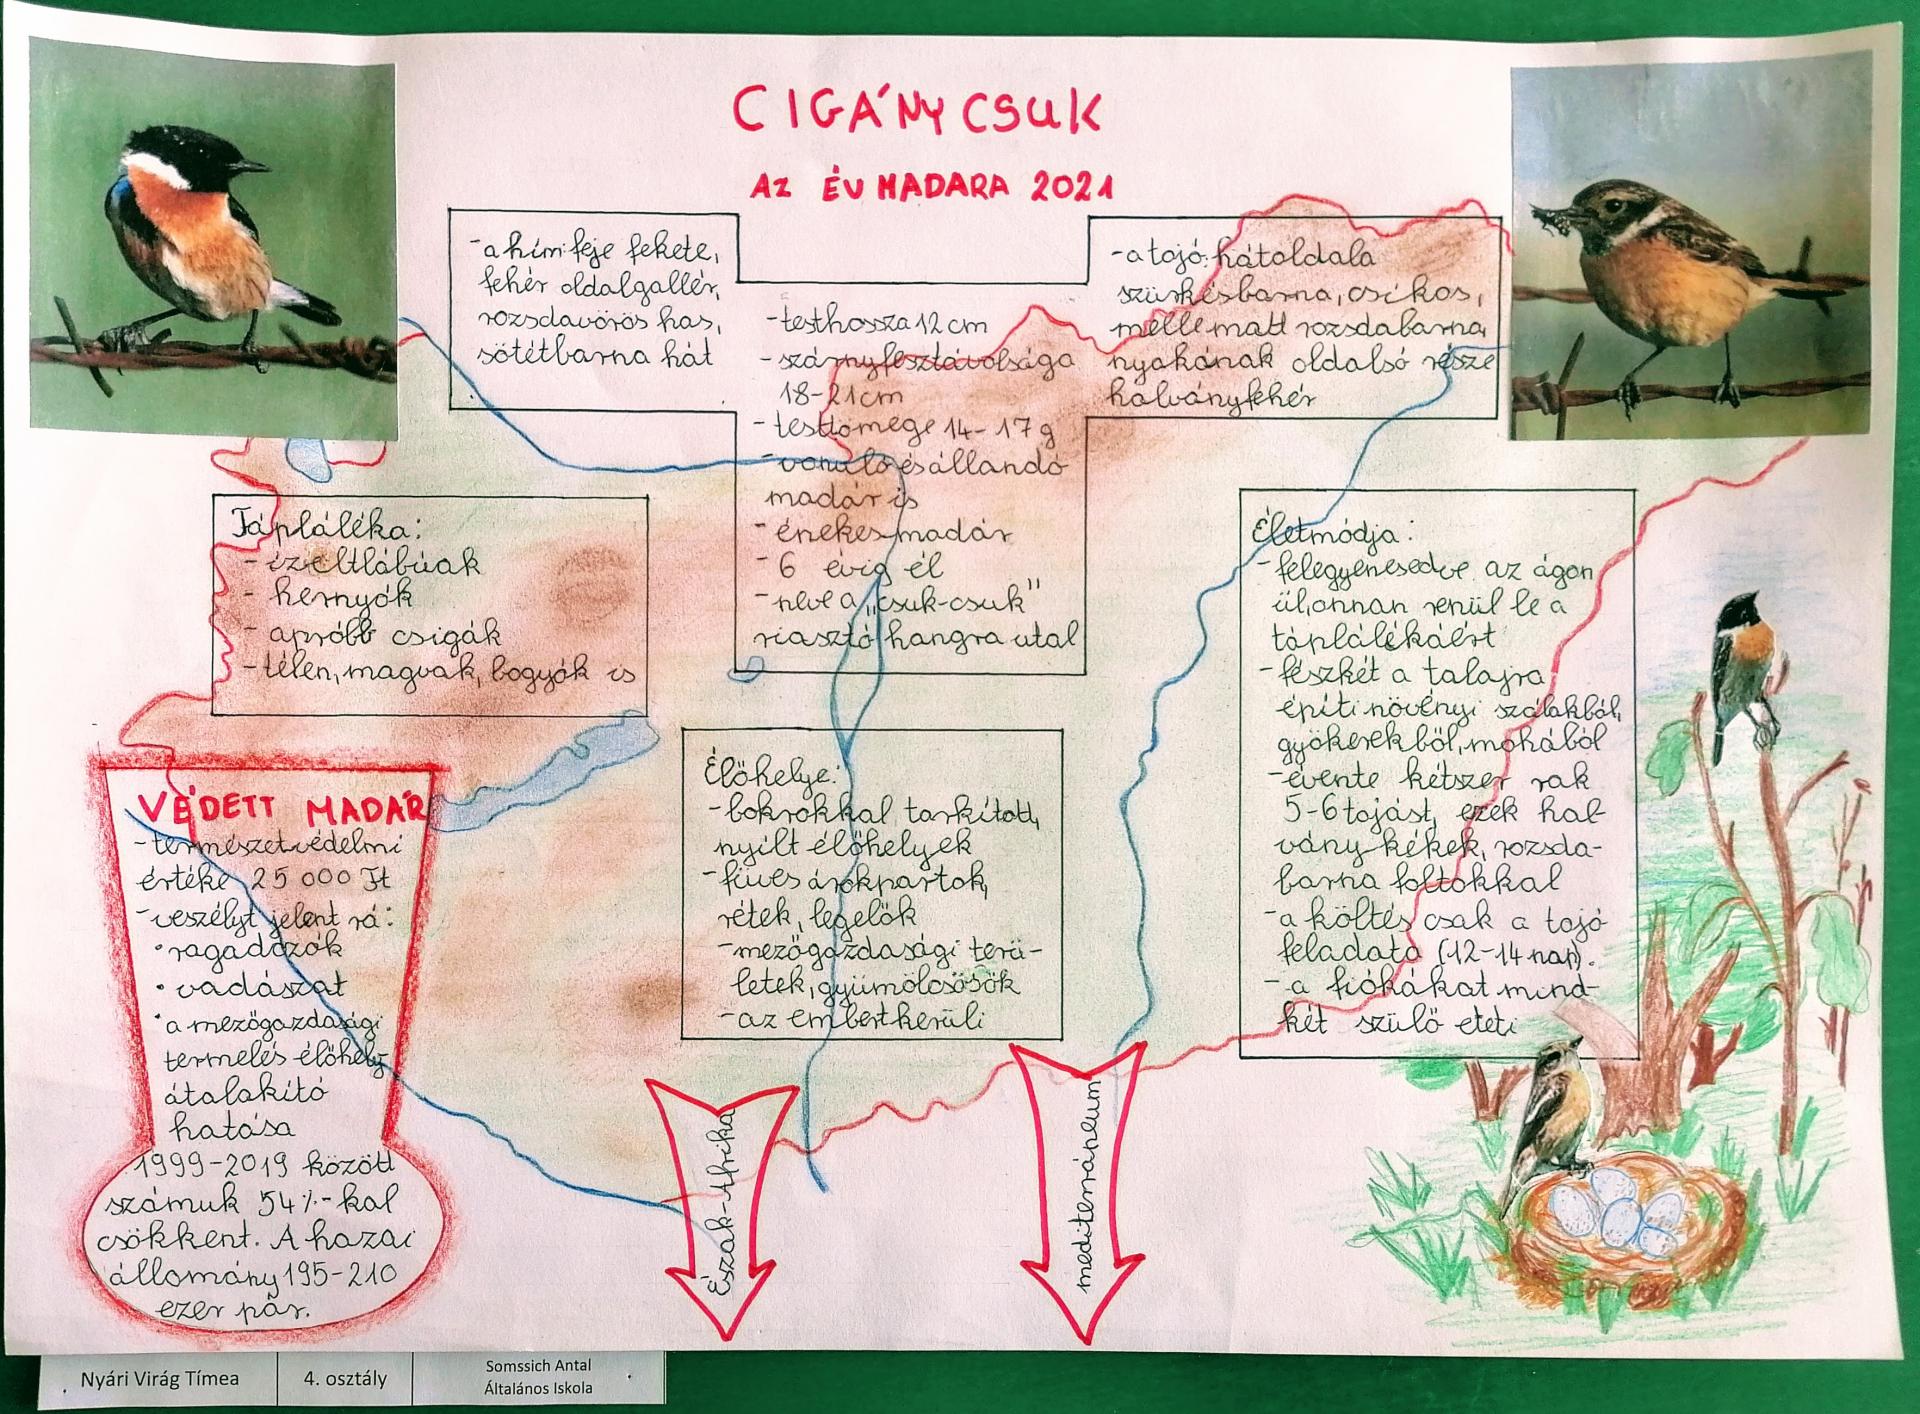 CIGÁNYCSUK
AZ ÉV MADARA 2021
-a hím: feje fekete,
fehér oldalgallér,
rozsdavörös has,
sötétbarna hát
-testhossza 12 cm
-szárnyfesztávolsága
18-21cm
-testtömege 14-17 g
-vonuló és állandó
madár is
-énekesmadár
-6 évig él
-neve a „csuk-csuk"
riasztó hangra utal
-a tojó: hátoldala
szürkésbarna, csíkos,
melle matt rozsdabarna
nyakának oldalsó része
halványfehér
Tápláléka:
-ízeltlábúak
-hernyók
-apróbb csigák
-télen, magvak, bogyók is
Élőhelye:
-bokrokkal tarkított,
nyílt élőhelyek
-füves árokpartok,
rétek, legelők
-mezőgazdasági terü-
letek, gyümölcsösök
-az embert kerüli
Életmódja:
-felegyenesedve az ágon
ül, onnan repül le a
táplálékáért
-fészkét a talajra
építi növényi szálakból,
gyökerekből, mohából
-évente kétszer rak
5-6 tojást, ezek hal-
vány kékek, rozsda-
barna foltokkal
-a költés csak a tojó
feladata (12-14 nap).
-a fiókákat mind-
két szülő eteti
VÉDETT MADÁR
-természetvédelmi
értéke 25 000 Ft
-veszélyt jelent rá:
•ragadozók
•vadászat
•a mezőgazdasági
termelés élőhely
átalakító
hatása
1999-2019 között
számuk 54%-kal
csökkent. A hazai
állomány 195-210
ezer pár.
Észak-Afrika
mediterráneum
Nyári Virág Tímea
4. osztály
Somssich Antal
Általános Iskola